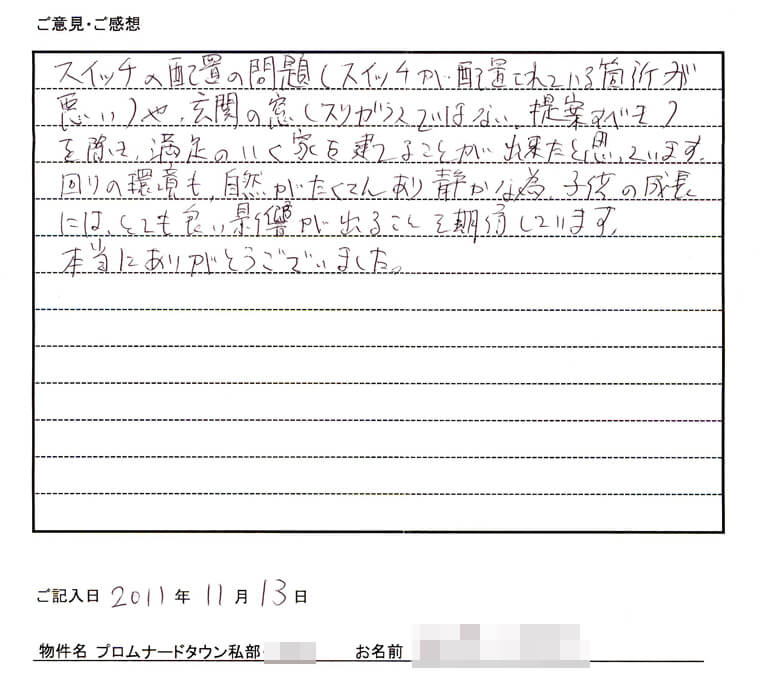 ご意見・ご感想
スイッチの配置の問題(スイッチが配置されている箇所が
悪い)や、玄関の窓(スリガラスではない、提案すべき)
を除き、満足のいく家を建てることが出来たと思っています。
回りの環境も、自然がたくさんあり静かな為、子供の成長
には、とても良い影響が出ることを期待しています。
本当にありがとうございました。
ご記入日 2011年 11月 13日
物件名 プロムナードタウン私部・ お名前